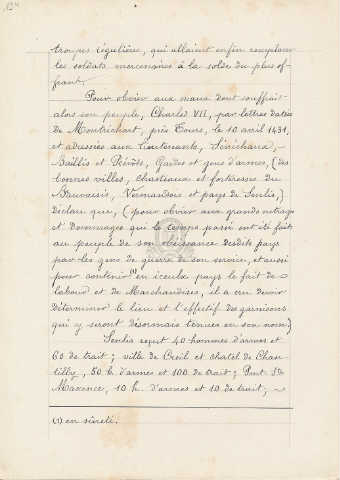 troupes régulières, qui allaient enfin remplacer
les soldats mercenaires à la solde du plus of-
frant.
Pour obvier aux maux dont souffrait
alors son peuple, Charles VII, par lettres datées
de Montrichart, près Tours, le 10 avril 1431,
et adressées aux Lieutenants, Sénéchaux,
Baillis et Prévôts, Gardes et gens d'armes, (des
bonnes villes, chasteaux et forteresses du
Beauvaisis, Vermandois et pays de Senlis,)
déclare que, (pour obvier aux grands outrages
et dommages que le temps passé ont été faits
au peuple de son obéissance desdits pays
par les gens de guerre de son service, et aussi
pour contenir (1) en iceulx pays le fait de
labour et de Marchandises, il a cru devoir
déterminer le lieu et l'effectif des garnisons
qui y seront désormais tenues en son nom.)
Senlis reçut 40 hommes d'armes et
60 de trait; ville de Creil et châtel de Chan-
tilly, 50 h. d'armes et 100 de trait; Pont Ste
Maxence, 10 h. d'armes et 10 de trait;
(1) en sûreté.